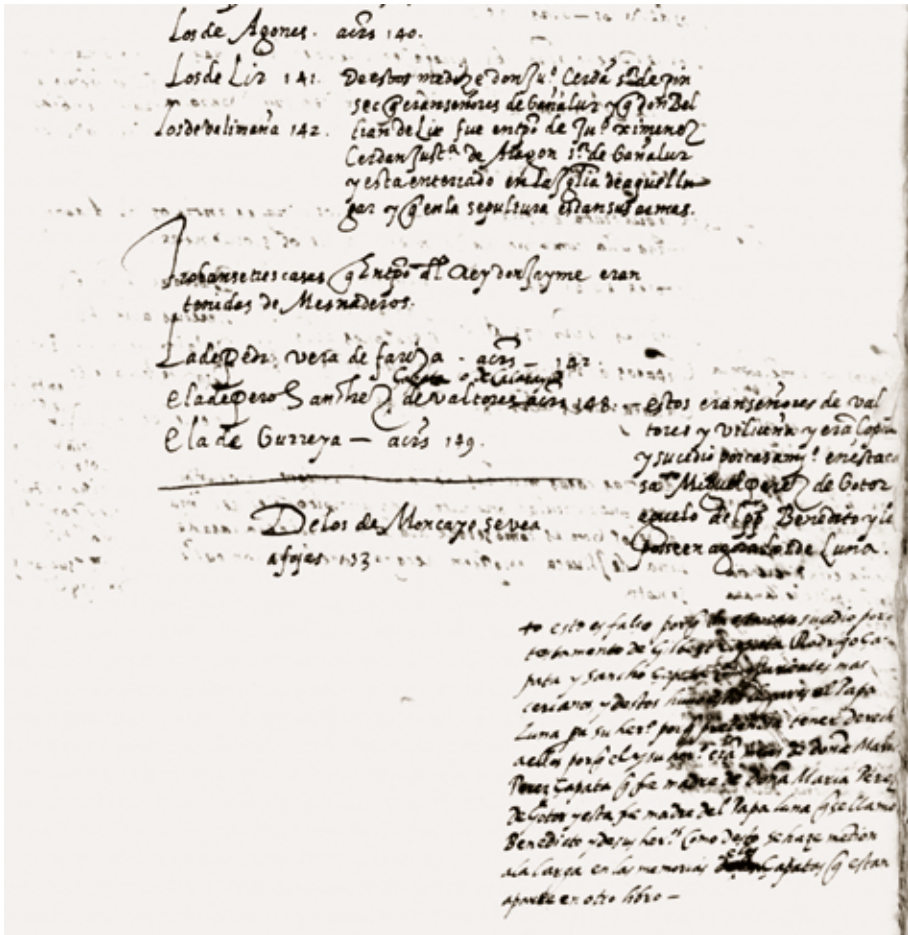 Los de Agones. acrs 140.
Los de Liz 141. De estos me dize don Ju.º Cerdan s.r de pin
sec q̃ eran señores de Gañalur y q̃ don Bel
Los de valimaña 142. tran de Lix fue en tp̃o de Ju.º ximenez
Cerdan Just.ª de Aragon s.r de Gañalur
y esta enterrado en la Iglia de aquel lu
gar y q̃ en la sepultura estan sus armas.
Trobanse tres casas q̃ En tp̃o dl̃ Rey don Jayme eran
tenidas de Mesnaderos.
La de Pedr vera de fariza - acrs - 147.
Çapata o de Calatayud
E la de Pero Sanchez de valtores acrs 148. -
E la de Gurreya - acrs 149.
estos eran señores de val
tores y viliueña y erã Çapata
y sucedio por casam.º en esta ca
sa Miguel perez de Gotor
aguelo del pp̃ Benedito y le
posseen agora los de Luna.
De los de Moncayo se vea
a fojas 153
+o esto es falso porq̃ sucedio por
testamento de Çapata Rodrigo Ça
pata y Sancho Çapata parientes mas
cercanos, y destos el Papa
Luna pª su her.º porq̃ pretendia tener derech
a ellos porq̃ el y su her.º erã de doña Maria
Perez Çapata q̃ fue madre de doña Maria Perez
de Gotor y esta fue madre del Papa Luna q̃ se llamo
Benedicto y de sus her.os Como desto se haze mencion
a la larga en las memorias de los Çapatas q̃ estan
aparte en otro libro -